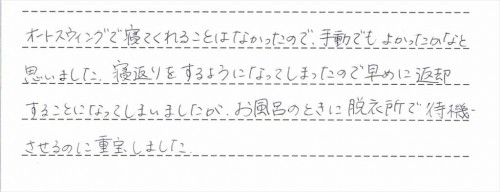 オートスウィングで寝てくれることはなかったので、手動でもよかったかなと
思いました。寝返りをするようになってしまったので早めに返却
することになってしまいましたが、お風呂のときに脱衣所で待機
させるのに重宝しました。